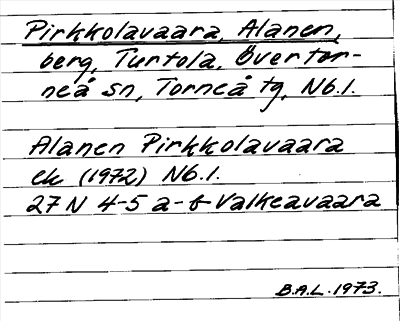 Pirkkolavaara, Alanen,
berg, Turtola, Övertor-
neå sn, Torneå tg, Nb.l.
Alanen Pirkkolavaara
ek (1972) Nb.l.
27N 4-5 a-b Valkeavaara
B.A.L. 1973.